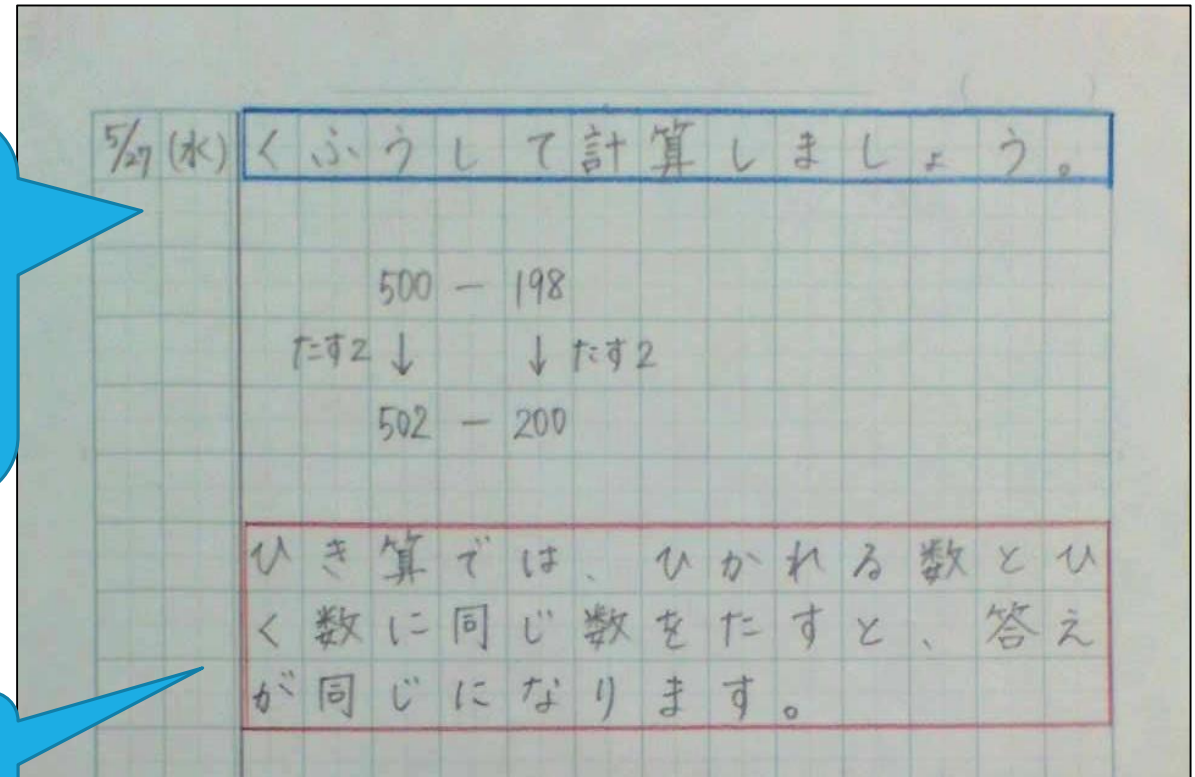 5/27 (水) くふうして計算しましょう。
500 − 198
たす2 ↓ ↓ たす2
502 − 200
ひき算では、ひかれる数とひ
く数に同じ数をたすと、答え
が同じになります。